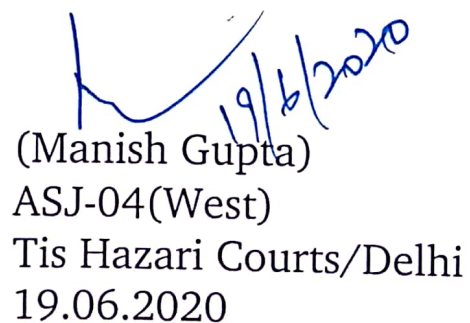 19/6/2020
(Manish Gupta)
ASJ-04(West)
Tis Hazari Courts/Delhi
19.06.2020